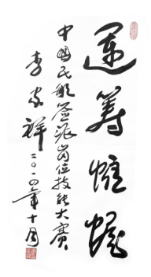 运筹帷幄
中国民航签派岗位技能大赛
李家祥
二〇一四年十月